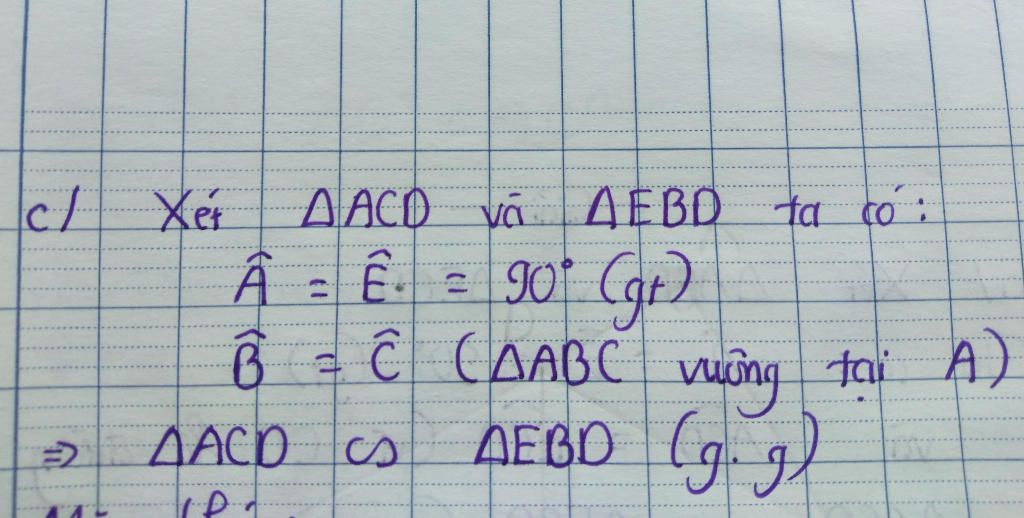 c/ Xét ΔACD và ΔEBD ta có:
Â = Ê = 90° (gt)
B̂ = Ĉ (ΔABC vuông tại A)
⇒ ΔACD ∽ ΔEBD (g.g)